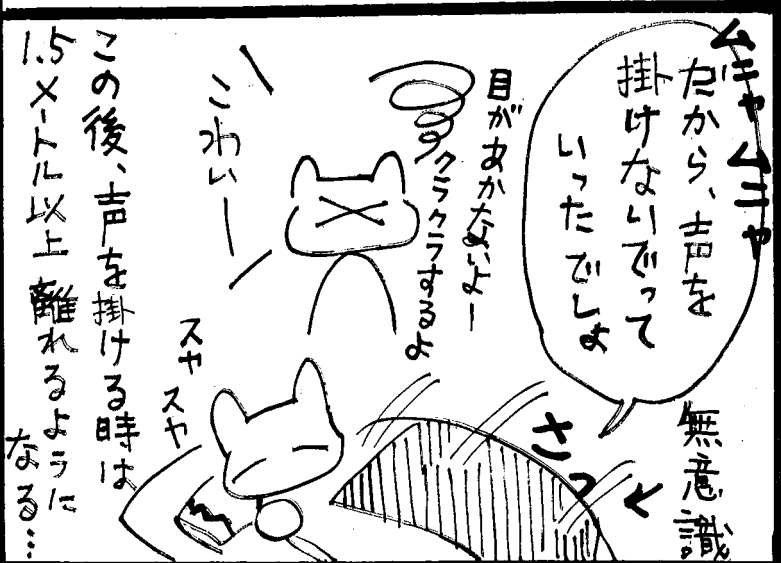 ムニャムニャ
だから、声を
掛けないでって
いったでしょ
無意識
さっ
目があかないよー
クラクラするよ
こわいー
スヤ
スヤ
この後、声を掛ける時は
1.5メートル以上離れるように
なる…